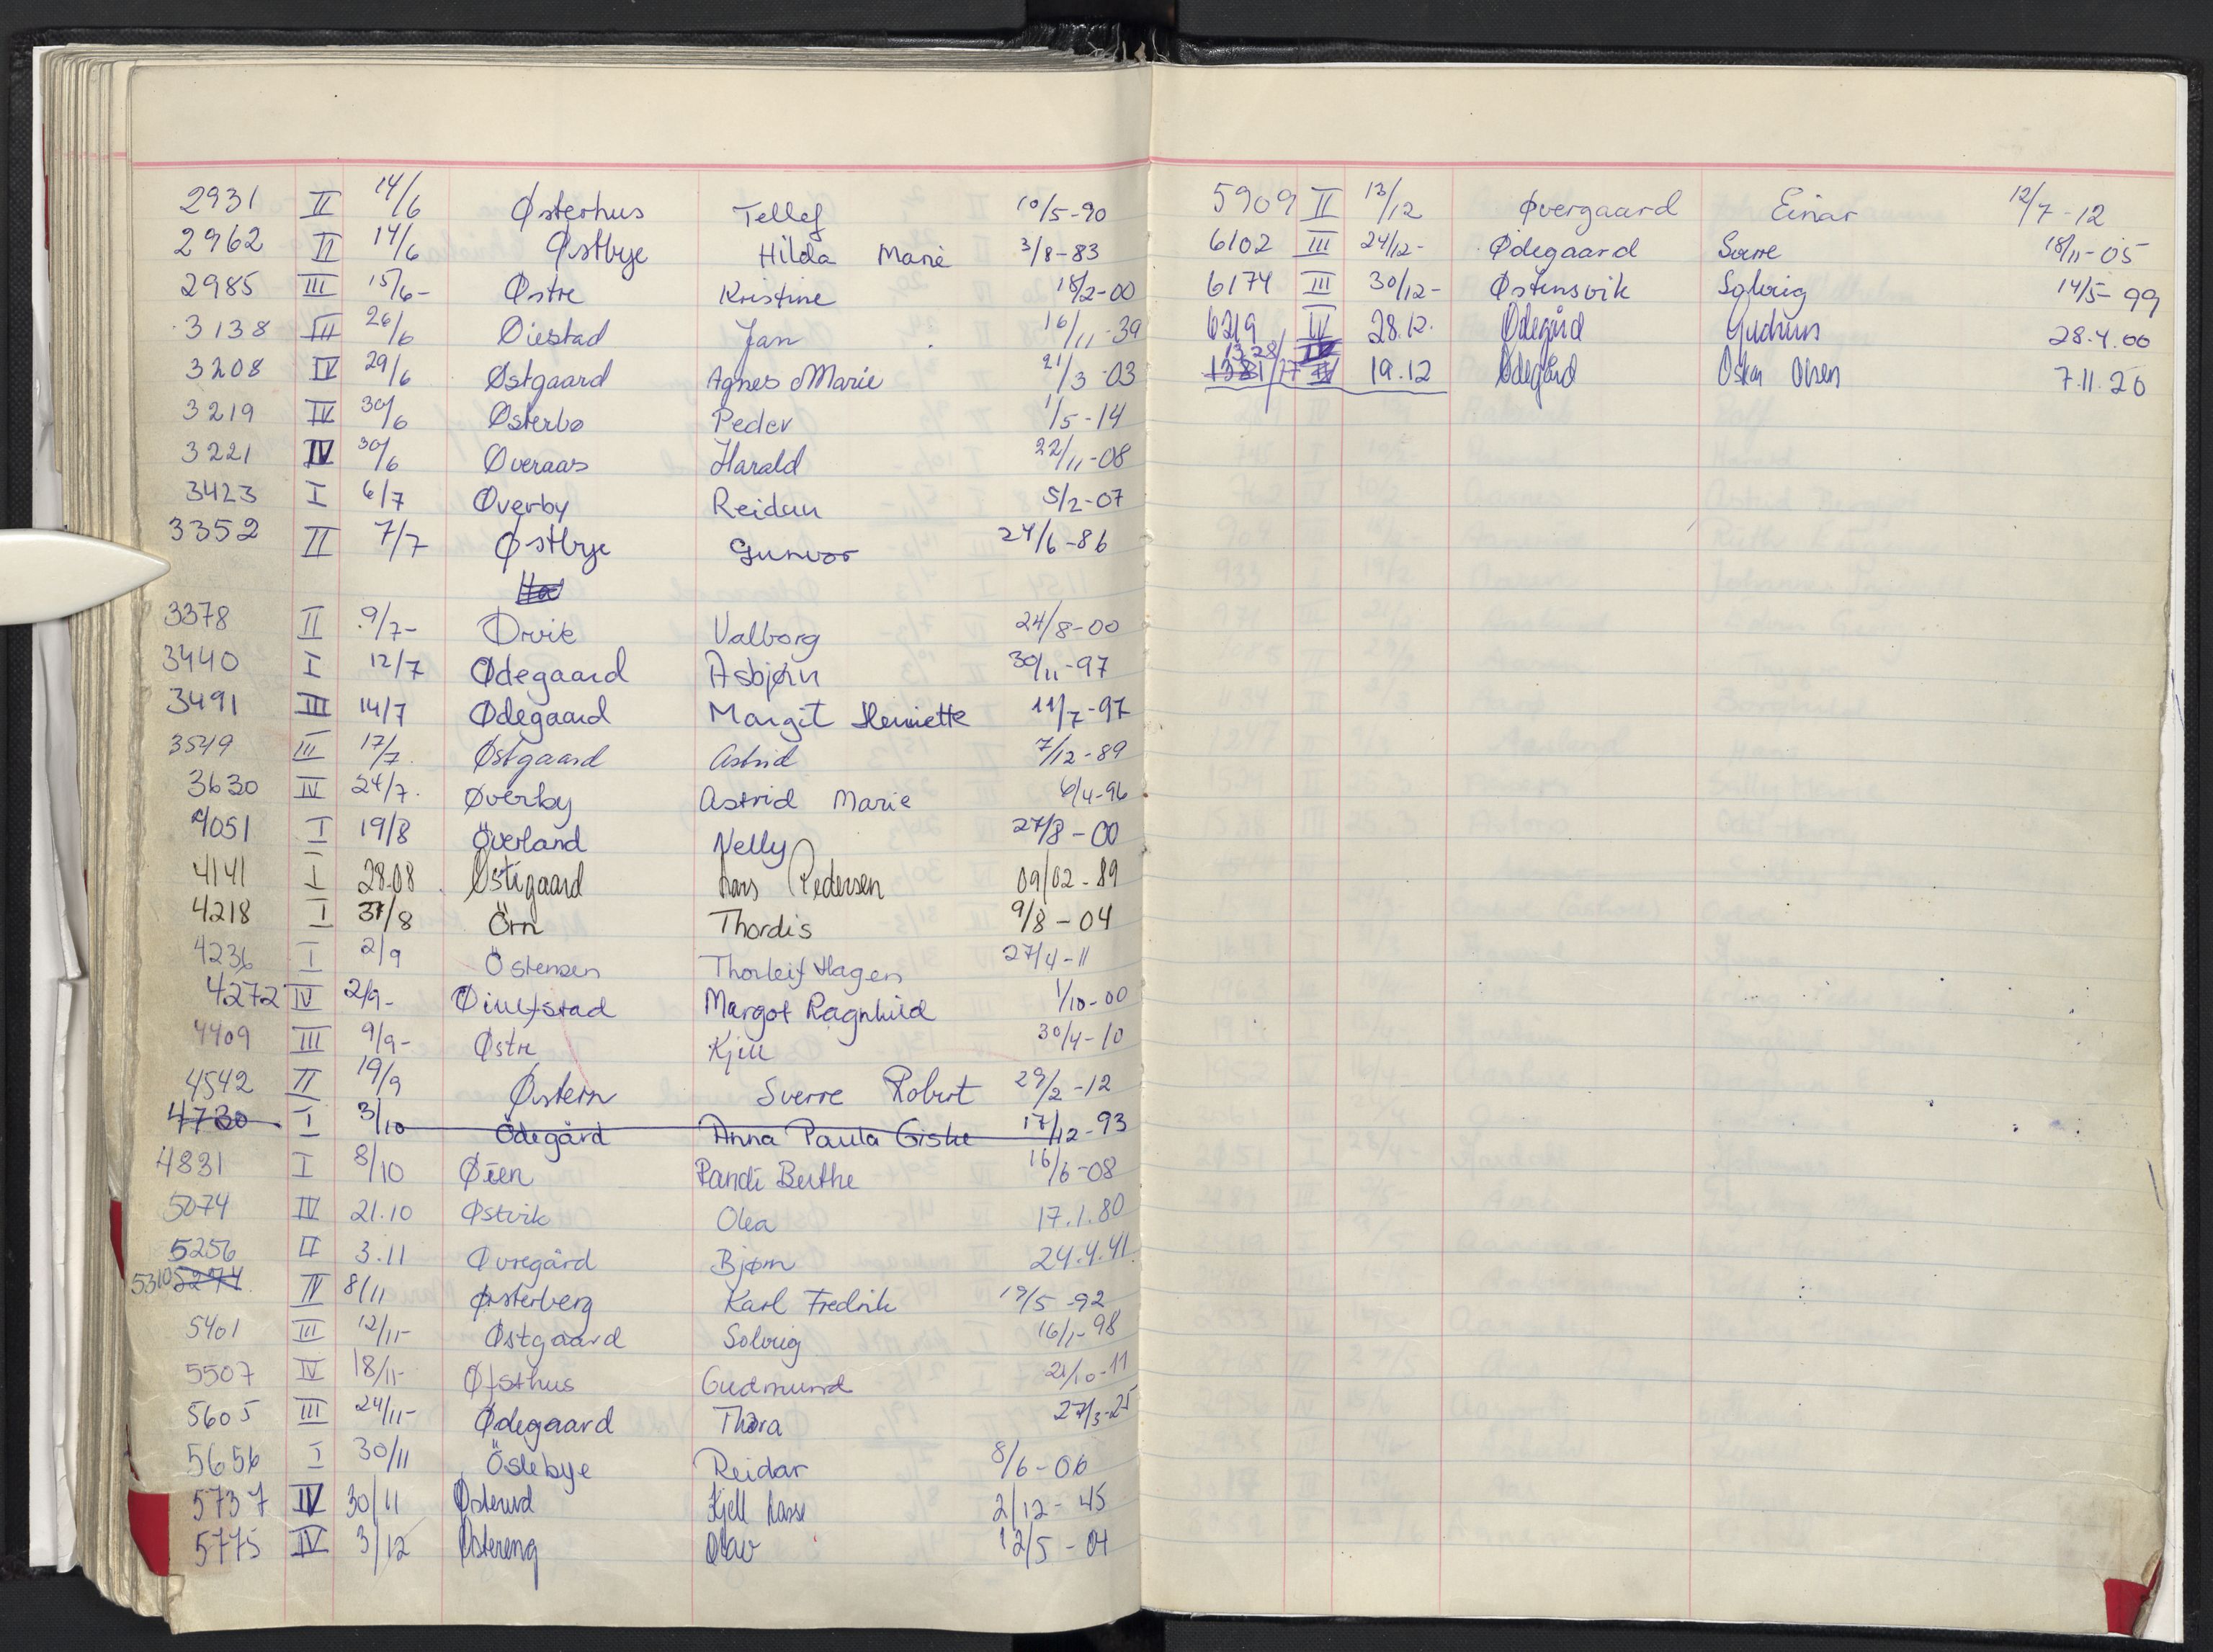 2931 II 14/6 Østerhus Tellef 10/5-90
2962 II 14/6 Østbye Hilda Marie 3/8-83
2985 III 15/6- Østre Kristine 18/2-00
3138 III 26/6 Øiestad Jan 16/11-39
3208 IV 29/6 Østgaard Agnes Marie 21/3-03
3219 IV 30/6 Østerbø Peder 1/5-14
3221 IV 30/6 Øveraas Harald 22/11-08
3423 I 6/7 Øverby Reidun 5/2-07
3352 II 7/7 Østbye Gunvor 24/6-86
3378 II 9/7- Ørvik Valborg 24/8-00
3440 I 12/7 Ødegaard Asbjørn 30/11-97
3491 III 14/7 Ødegaard Margit Henriette 11/7-97
3549 III 17/7. Østgaard Astrid 7/12-89
3630 IV 24/7. Øverby Astrid Marie 6/4-96
4051 I 19/8 Överland Nelly 27/8-00
4141 I 28.08. Østigaard Lars Pedersen 09/02-89
4218 I 31/8 Örn Thordis 9/8-04
4236 I 2/9 Östensen Thorleif Hagen 27/4-11
4272 IV 2/9- Øiulfstad Margot Ragnhild 1/10-00
4409 III 9/9- Østre Kjell 30/4-10
4542 II 19/9 Østern Sverre Robert 29/2-12
4730 I 3/10 Ödegård Anna Paula Giske 17/12-93
4831 I 8/10 Øien Randi Berthe 16/6-08
5074 IV 21.10 Østvik Olea 17.1.80
5256 II 3.11 Øvregård Bjørn 24.4.41
5310 5274 IV 8/11 Østerberg Karl Fredrik 19/5-92
5401 III 12/11- Østgaard Solveig 16/1-98
5507 IV 18/11- Øfsthus Gudmund 21/10-11
5605 III 24/11- Ødegaard Thora 27/3-25
5656 I 30/11 Öslebye Reidar 8/6-06
5737 IV 30/11 Østerud Kjell Lasse 2/12-45
5775 IV 3/12 Østereng Olav 12/5-04
5909 II 13/12 Øvergaard Einar 12/7-12
6102 III 24/12- Ødegaard Sverre 18/11-05
6174 III 30/12- Østensvik Solveig 14/5-99
6219 IV 28.12. Ødegård Gudrun 28.4.00
1328/
1381/77 IV 19.12 Ødegård Oskar Olsen 7.11.20